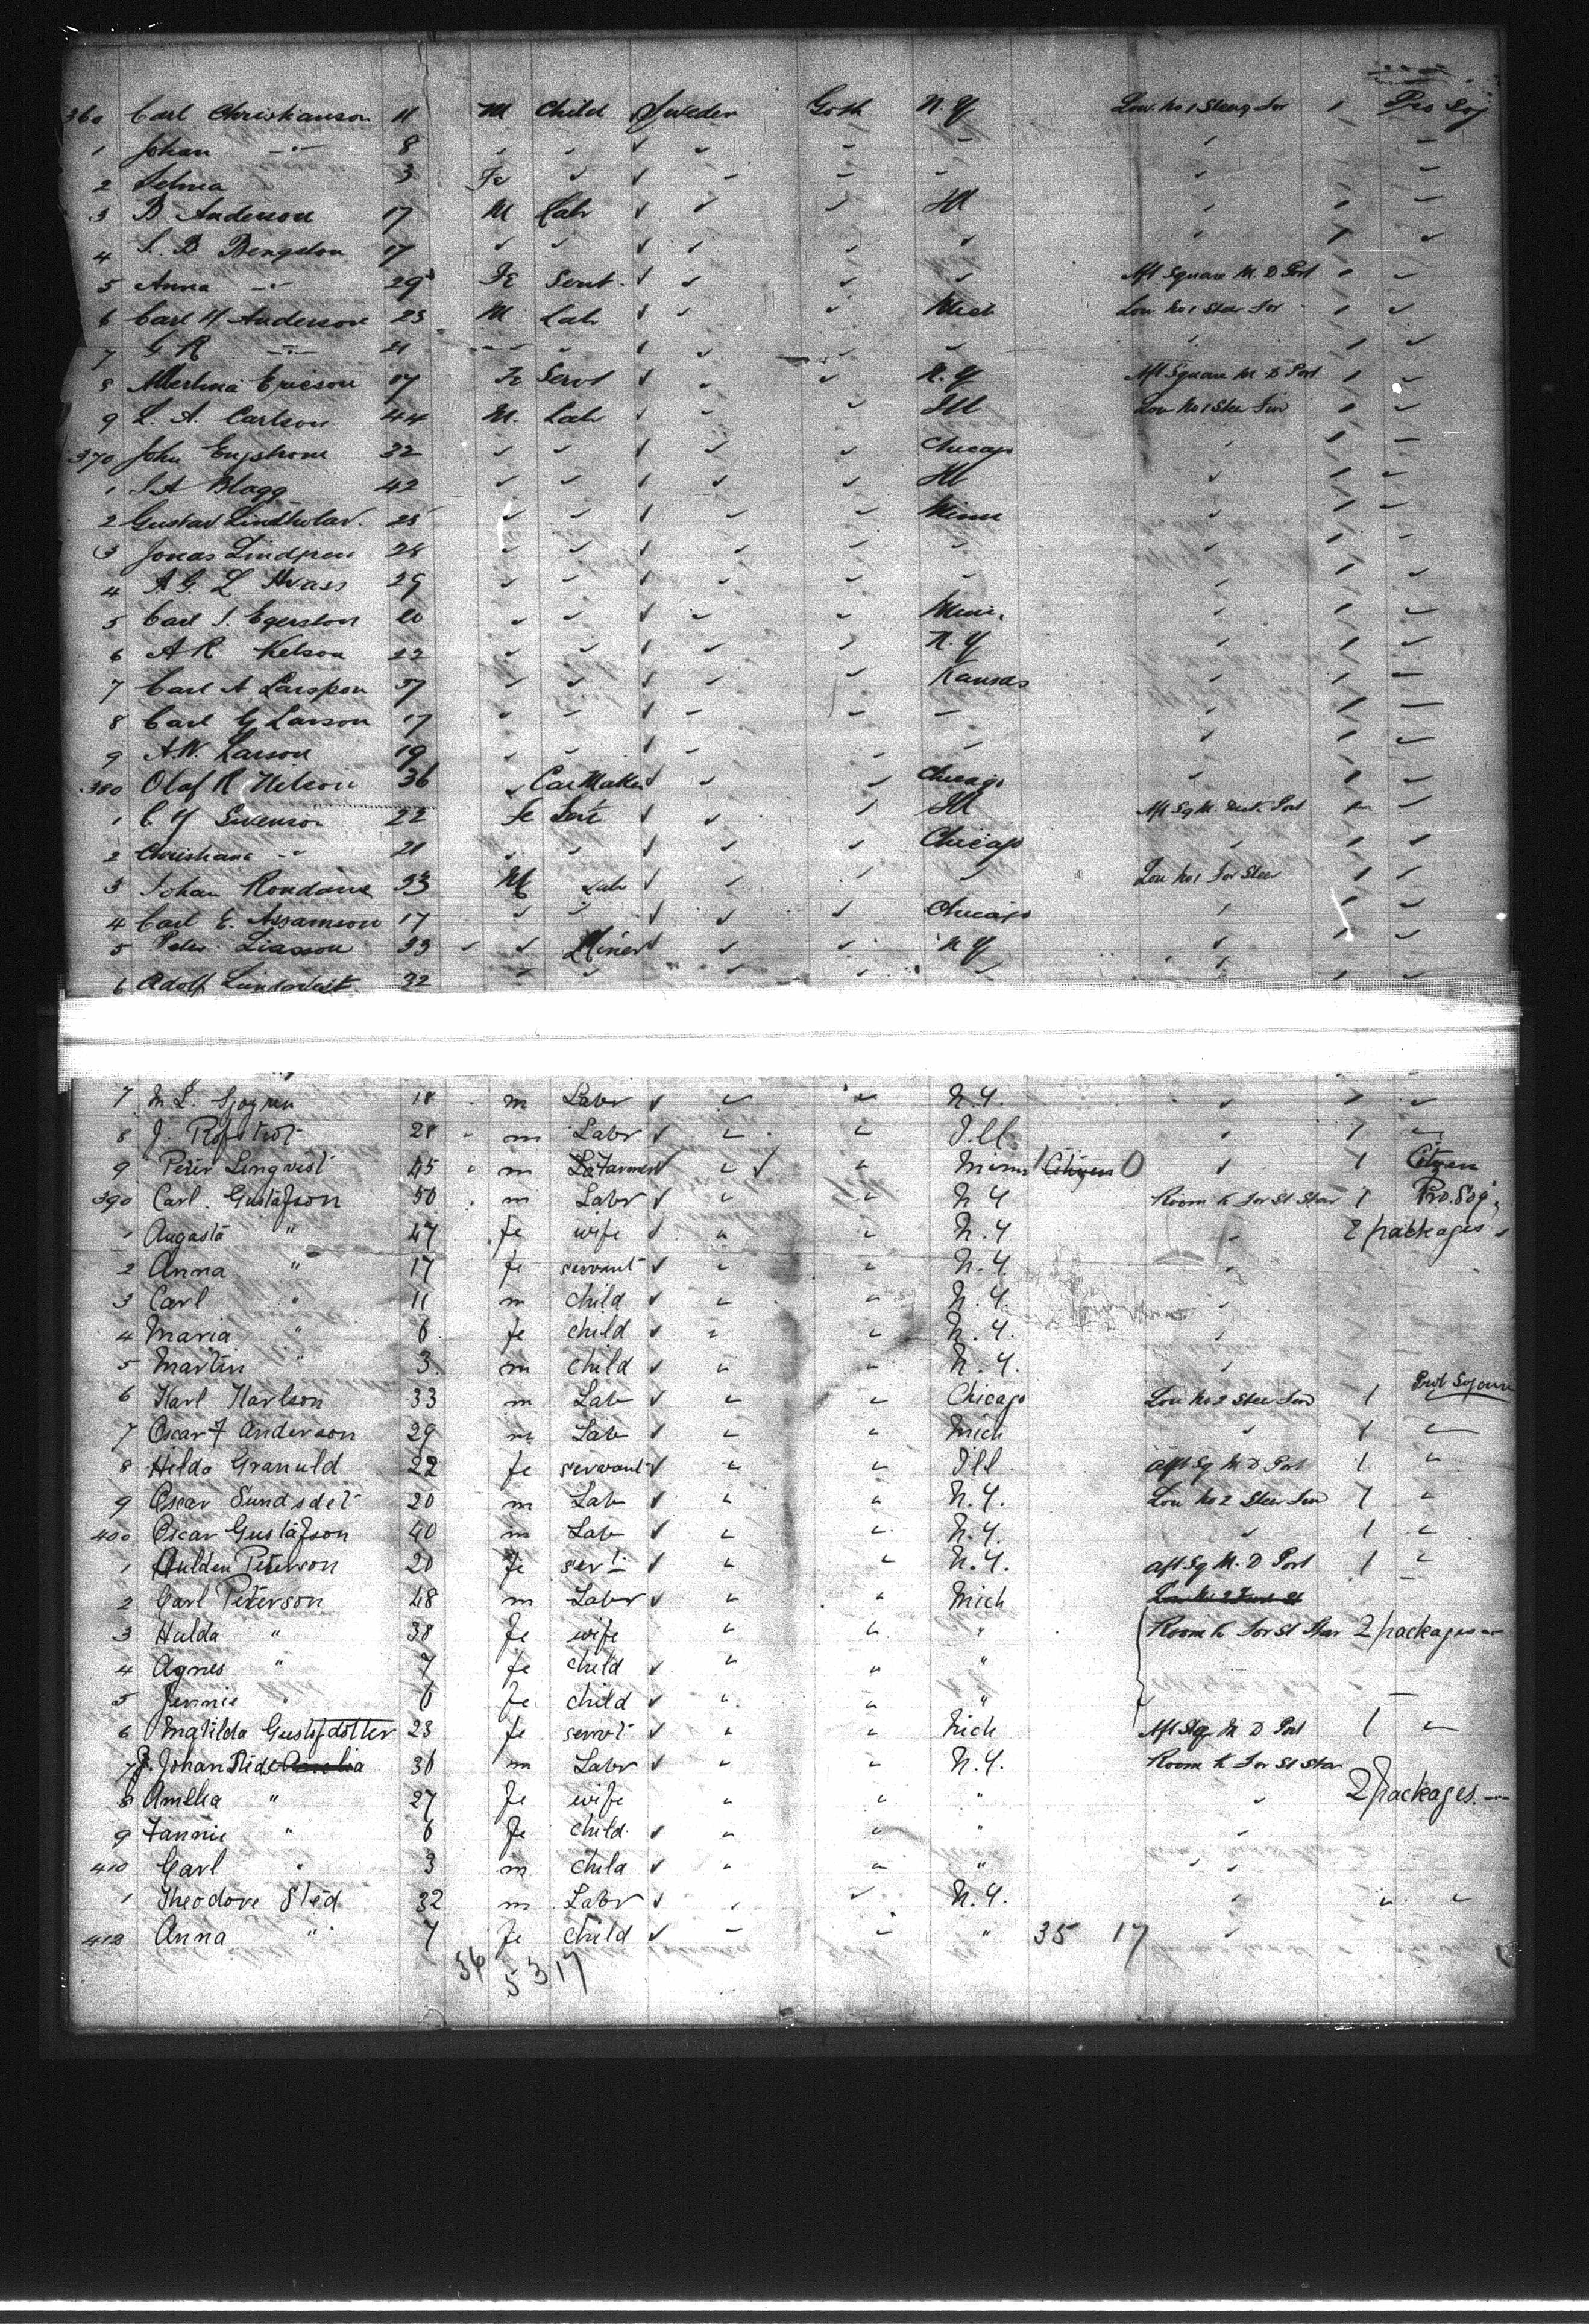 360 Carl Christianson 11 M Child Sweden Goth N.Y Low. No 1 Steerg For 1 Pro Soj
1 Johan —"— 8 ✓ ✓ ✓ ✓
2 Selma 3 Fe ✓ ✓
3 B Anderson 17 M Lab ✓ ✓ ✓ Ill ✓ 1
4 S. B. Bengston 17 ✓ ✓ ✓ ✓ 1 ✓
5 Anna —"— 29 Fe Servt. ✓ ✓ ✓ Aft Square M. D Port 1 ✓
6 Carl H Anderson 23 M Lab ✓ ✓ ✓ Mich Low No 1 Steer For 1 ✓
7 G R —"— 21 ✓ ✓ 1 ✓
8 Albertina Ericson 17 Fe Servt ✓ ✓ ✓ N.Y Aft Square M D Port 1 ✓
9 L. A. Carlson 44 M. Lab ✓ ✓ ✓ Ill Low No 1 Steer For 1 ✓
370 John Engstrom 32 ✓ ✓ ✓ ✓ ✓ Chicago 1
1 S A Blagg 42 ✓ ✓ ✓ ✓ ✓ Ill ✓ 1 ✓
2 Gustav 25 ✓ ✓ ✓ ✓ ✓ Minn ✓ 1 ✓
3 Jonas Lindgren 28 ✓ ✓ ✓ ✓ ✓ ✓ 1
4 A G. L 29 ✓ ✓ ✓ ✓ ✓ 1 ✓
5 Carl S. Egerston 20 ✓ ✓ ✓ ✓ ✓ Minn. 1 ✓
6 A R Nelson 22 ✓ ✓ ✓ ✓ ✓ N.Y 1 ✓
7 Carl A Larsson 37 ✓ ✓ ✓ ✓ ✓ Kansas 1
8 Carl G Larson 17 ✓ ✓ ✓ 1
9 A.W. Larson 19 ✓ ✓ ✓ 1 ✓
380 Olaf R Nelson 36 ✓ Car Maker ✓ ✓ ✓ Chicago ✓ 1 ✓
1 C. Y Swenson 22 Fe Servt ✓ ✓ Ill Aft Sq M. Deck Port ✓
2 Christiana —"— 21 ✓ ✓ ✓ ✓ ✓ Chicago 1
3 Johan 33 M Lab ✓ ✓ Low No 1 For Steer 1
4 Carl E. 17 ✓ ✓ ✓ ✓ ✓ Chicago 1 ✓
5 Peter 33 ✓ ✓ Miner ✓ ✓ ✓ N Y ✓ 1 ✓
6 Adolf Lundqvist 32 ✓ ✓ ✓ ✓ ✓ 1 ✓
7 M L. Sjogren 18 m Labr ✓ " " N.Y. ✓ 1 ✓
8 J. 28 m Labr ✓ " " Ill ✓ 1
9 Peter Lingvist 45 m Farmer ✓ " ✓ " Minn Citizen ✓ 1 Citizen
390 Carl. Gustafson 50 m Labr ✓ " " N.Y Room K For St Star 1 Pro. Soj.
1 Augasta " 47 fe wife ✓ " " N.Y 2 packages
2 Anna " 17 fe servant ✓ " " N.Y.
3 Carl " 11 m child ✓ " " N.Y.
4 Maria " 6 fe child ✓ " " N.Y.
5 Martin " 3 m child ✓ " " N.Y. ✓
6 Karl Karlson 33 m Lab ✓ " " Chicago Low No 2 Steer For 1 Prot Sojourn
7 Oscar F Anderson 29 m Lab ✓ " " Mich ✓ 1
8 Hilda Granuld 22 fe servant ✓ " " Ill Aft Sq M D Port 1 "
9 Oscar Sundsdet 20 m Lab ✓ " " N.Y. Low No 2 Steer For 1 "
400 Oscar Gustafson 40 m Lab ✓ " " N.Y. ✓ 1 "
1 Hulden Peterson 20 fe servt ✓ " " N.Y. Aft Sq M. D Port 1 "
2 Carl Peterson 48 m Labr ✓ " " Mich
3 Hulda " 38 fe wife " " " Room K For St Star 2 packages
4 Agnes " 7 fe child ✓ " " "
5 Jennie " 6 fe child ✓ " " "
6 Matilda Gustafdotter 23 fe servt ✓ " " Mich Aft Sq M D Port 1
7 J. Johan Sted Amelia 36 m Labr ✓ " " N.Y. Room K For St Star
8 Amelia " 27 fe wife " " " 2 packages.
9 Fannie " 6 fe child ✓ " " "
410 Carl " 3 m child ✓ " " "
1 Theodore Sted 32 m Labr ✓ N.Y.
412 Anna " 7 fe child ✓ " " 35 17
36 53 17